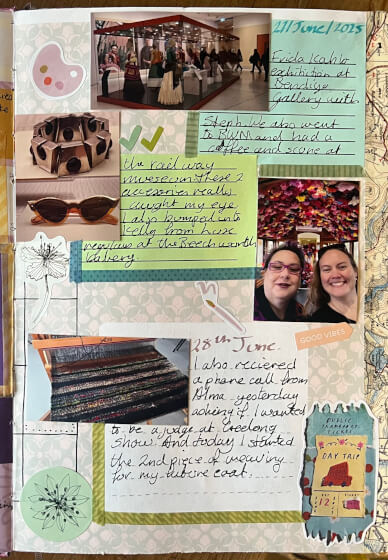 21/June/2025
Frida Kahlo
exhibition at
Bendigo
Gallery with
Steph. We also went
to BWM and had a
coffee and scone at
the railway
museum these 2
accessories really
caught my eye.
I also bumped into
Kelly from
regulars at the Beechworth
bakery.
GOOD VIBES
28th June.
I also recieved
a phone call from
Alma yesterday
asking if I wanted
to be a judge at Geelong
show. And today I started
the 2nd piece of weaving
for my coat.
PUBLIC
TRANSPORT
TICKET
DAY TRIP
12